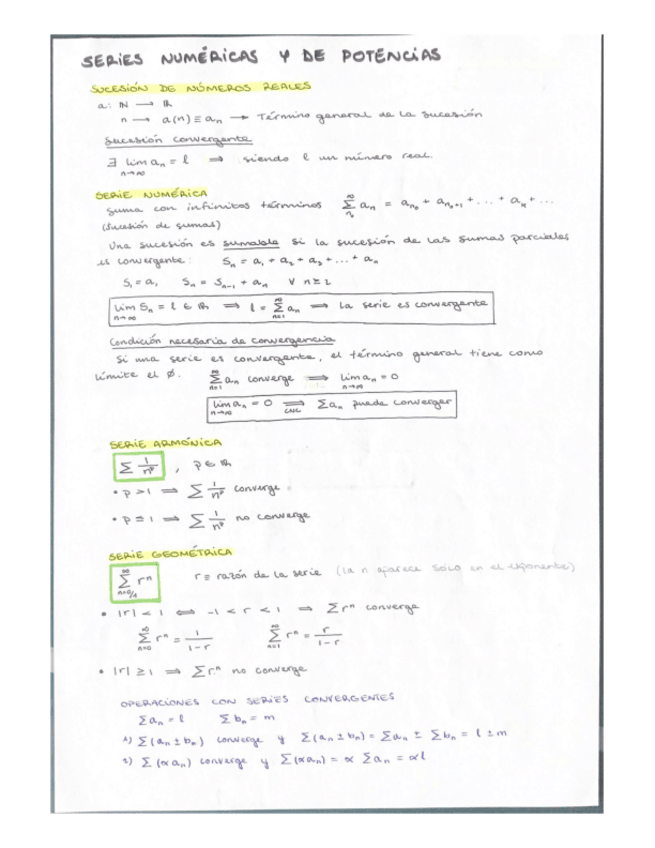 SERIES NUMÉRICAS Y DE POTENCIAS
SUCESIÓN DE NÚMEROS REALES
a: ℕ ⟶ ℝ
n ⟶ a(n) ≡ aₙ ⟶ Término general de la sucesión
Sucesión convergente
∃ lim_{n→∞} aₙ = l ⟹ siendo l un número real.
SERIE NUMÉRICA
Suma con infinitos términos ∑_{n₀}^{∞} aₙ = a_{n₀} + a_{n₀+1} + ... + aₙ + ...
(Sucesión de sumas)
Una sucesión es sumable si la sucesión de las sumas parciales
es convergente: Sₙ = a₁ + a₂ + a₃ + ... + aₙ
S₁ = a₁ Sₙ = Sₙ₋₁ + aₙ ∀ n ≥ 2
lim_{n→∞} Sₙ = l ∈ ℝ ⟹ l = ∑_{n=1}^{∞} aₙ ⟹ La serie es convergente
Condición necesaria de convergencia
Si una serie es convergente, el término general tiene como
límite el ∅. ∑_{n=1}^{∞} aₙ converge ⟹ lim_{n→∞} aₙ = 0
lim_{n→∞} aₙ = 0 ⟹_{CNC} ∑aₙ puede converger
SERIE ARMÓNICA
∑ 1/nᵖ , p ∈ ℝ
• p > 1 ⟹ ∑ 1/nᵖ converge
• p ≤ 1 ⟹ ∑ 1/nᵖ no converge
SERIE GEOMÉTRICA
∑_{n=0/1}^{∞} rⁿ r ≡ razón de la serie (la n aparece solo en el exponente)
• |r| < 1 ⟺ -1 < r < 1 ⟹ ∑rⁿ converge
∑_{n=0}^{∞} rⁿ = 1/(1-r) ∑_{n=1}^{∞} rⁿ = r/(1-r)
• |r| ≥ 1 ⟹ ∑rⁿ no converge
OPERACIONES CON SERIES CONVERGENTES
∑aₙ = l ∑bₙ = m
1) ∑(aₙ ± bₙ) converge y ∑(aₙ ± bₙ) = ∑aₙ ± ∑bₙ = l ± m
2) ∑(αaₙ) converge y ∑(αaₙ) = α ∑aₙ = αl